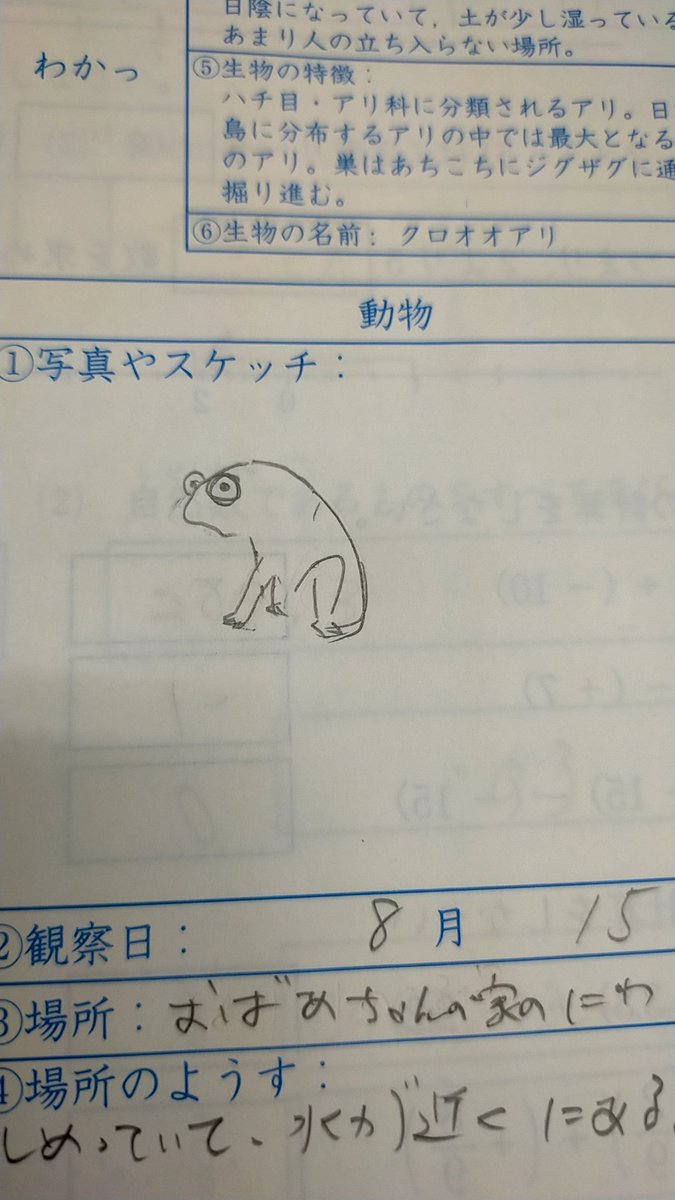 日陰になっていて，土が少し湿っている
あまり人の立ち入らない場所。
わかっ
⑤生物の特徴：
ハチ目・アリ科に分類されるアリ。日
島に分布するアリの中では最大となる
のアリ。巣はあちこちにジグザグに通
掘り進む。
⑥生物の名前：クロオオアリ
動物
①写真やスケッチ：
②観察日： 8月 15
③場所：おばあちゃんの家のにわ
④場所のようす：
しめっていて、水が近くにある。